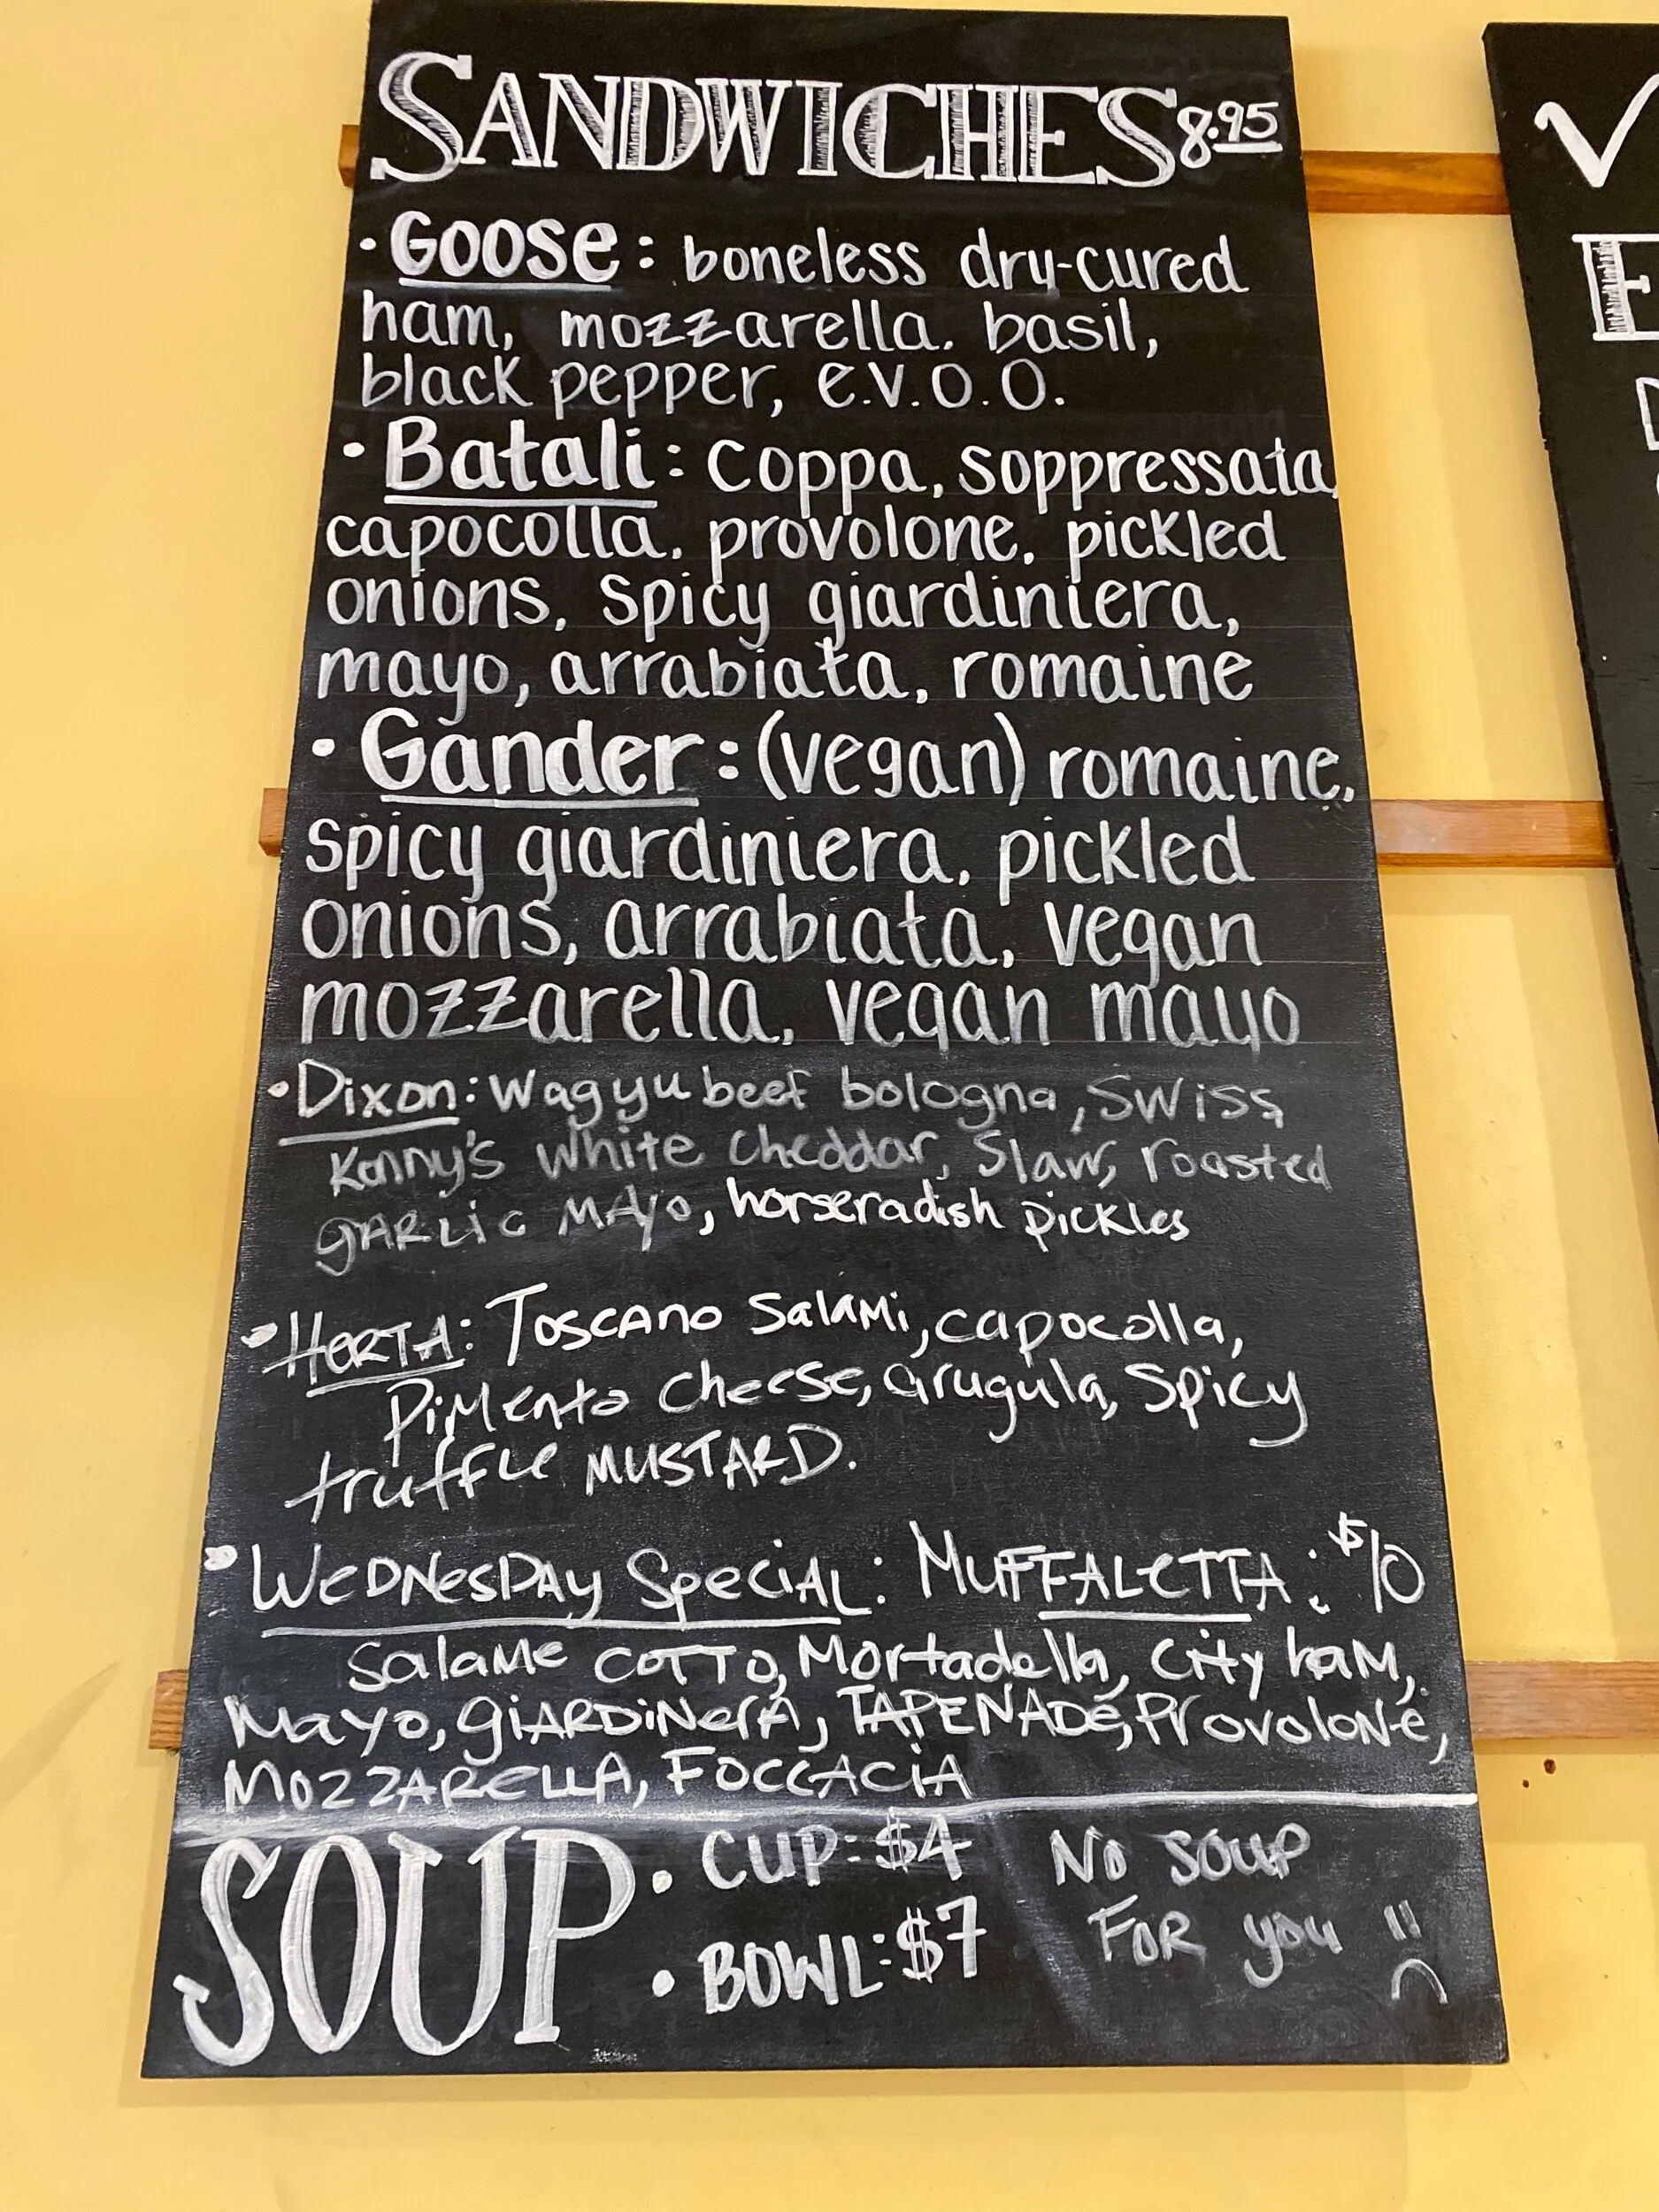 SANDWICHES 8.95
• Goose: boneless dry-cured
ham, mozzarella. basil,
black pepper, e.v.o.o.
• Batali: coppa, soppressata,
capocolla, provolone, pickled
onions, spicy giardiniera,
mayo, arrabiata, romaine
• Gander: (vegan) romaine,
spicy giardiniera, pickled
onions, arrabiata, vegan
mozzarella, vegan mayo
• Dixon: Wagyu beef bologna, Swiss,
Kenny's white cheddar, Slaw, roasted
garlic mayo, horseradish pickles
• HERTA: Toscano Salami, capocolla,
Pimento cheese, arugula, Spicy
truffle MUSTARD.
• WEDNESDAY Special: MUFFALETTA: $10
Salame COTTO, Mortadella, City ham,
Mayo, GiARDiNerA, TAPENADe, Provolone,
MOZZARELLA, FOCCACiA
SOUP • CUP: $4
• BOWL: $7
NO SOUP
FOR you